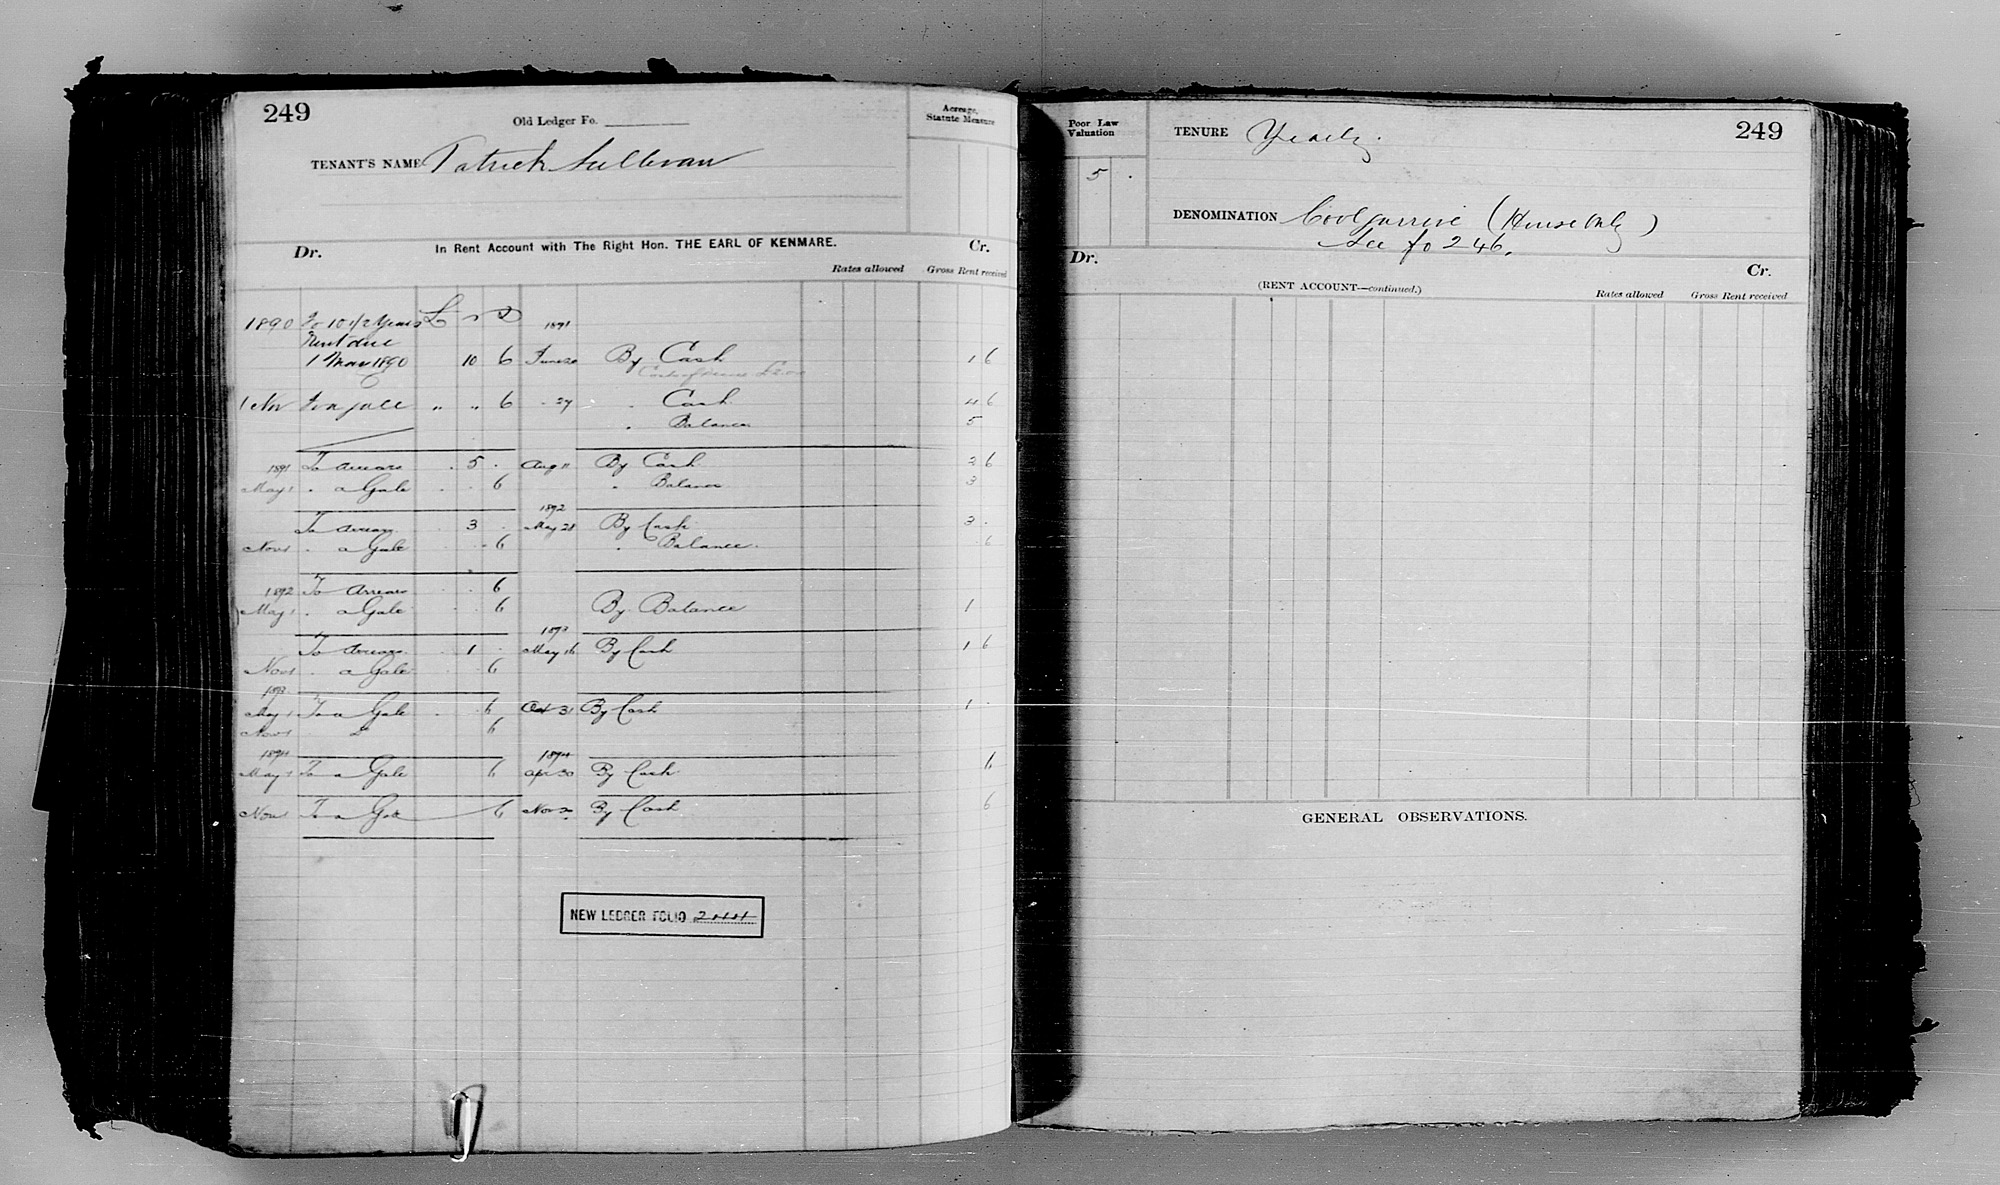 249
Old Ledger Fo.
Acreage,
Statute Measure
TENANT'S NAME Patrick Sullivan
Dr. In Rent Account with The Right Hon. THE EARL OF KENMARE. Cr.
Rates allowed Gross Rent received
1890 To 10 1/2 Years £ s D 1891
Rent due
1 May 1890 10 6 June 20 By Cash 1 6
1 Nov To a gale " " 6 " 27 " Cash 4 6
" Balance 5
1891 To Arrears . 5 . Aug 11 By Cash 2 6
May 1 " a Gale . . 6 " Balance 3
1892
To Arrears . 3 . May 28 By Cash 3 .
Nov 1 " a Gale . . 6 " Balance . 6
1892 To Arrears . . 6
May 1 " a Gale . . 6 By Balance 1
1893
To Arrears . 1 . May 16 By Cash 1 6
Nov 1 " a Gale . 6
1893
May 1 To a Gale . . 6 Oct 31 By Cash 1 .
Nov 1 Do 6
1894 1894
May 1 To a Gale 6 Apr 30 By Cash 6
Nov 1 To a Gale 6 Nov 2 By Cash 6
NEW LEDGER FOLIO 244
Poor Law
Valuation
5 .
TENURE Yearly. 249
DENOMINATION Coolgarrive (House Only)
See fo 246.
Dr. Cr.
(RENT ACCOUNT—continued.)
Rates allowed Gross Rent received
GENERAL OBSERVATIONS.